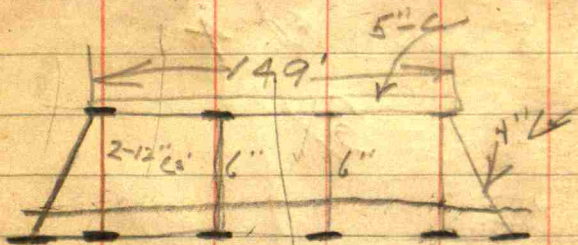 5"-C
149'
2-12" Cs'
6"
6"
4"